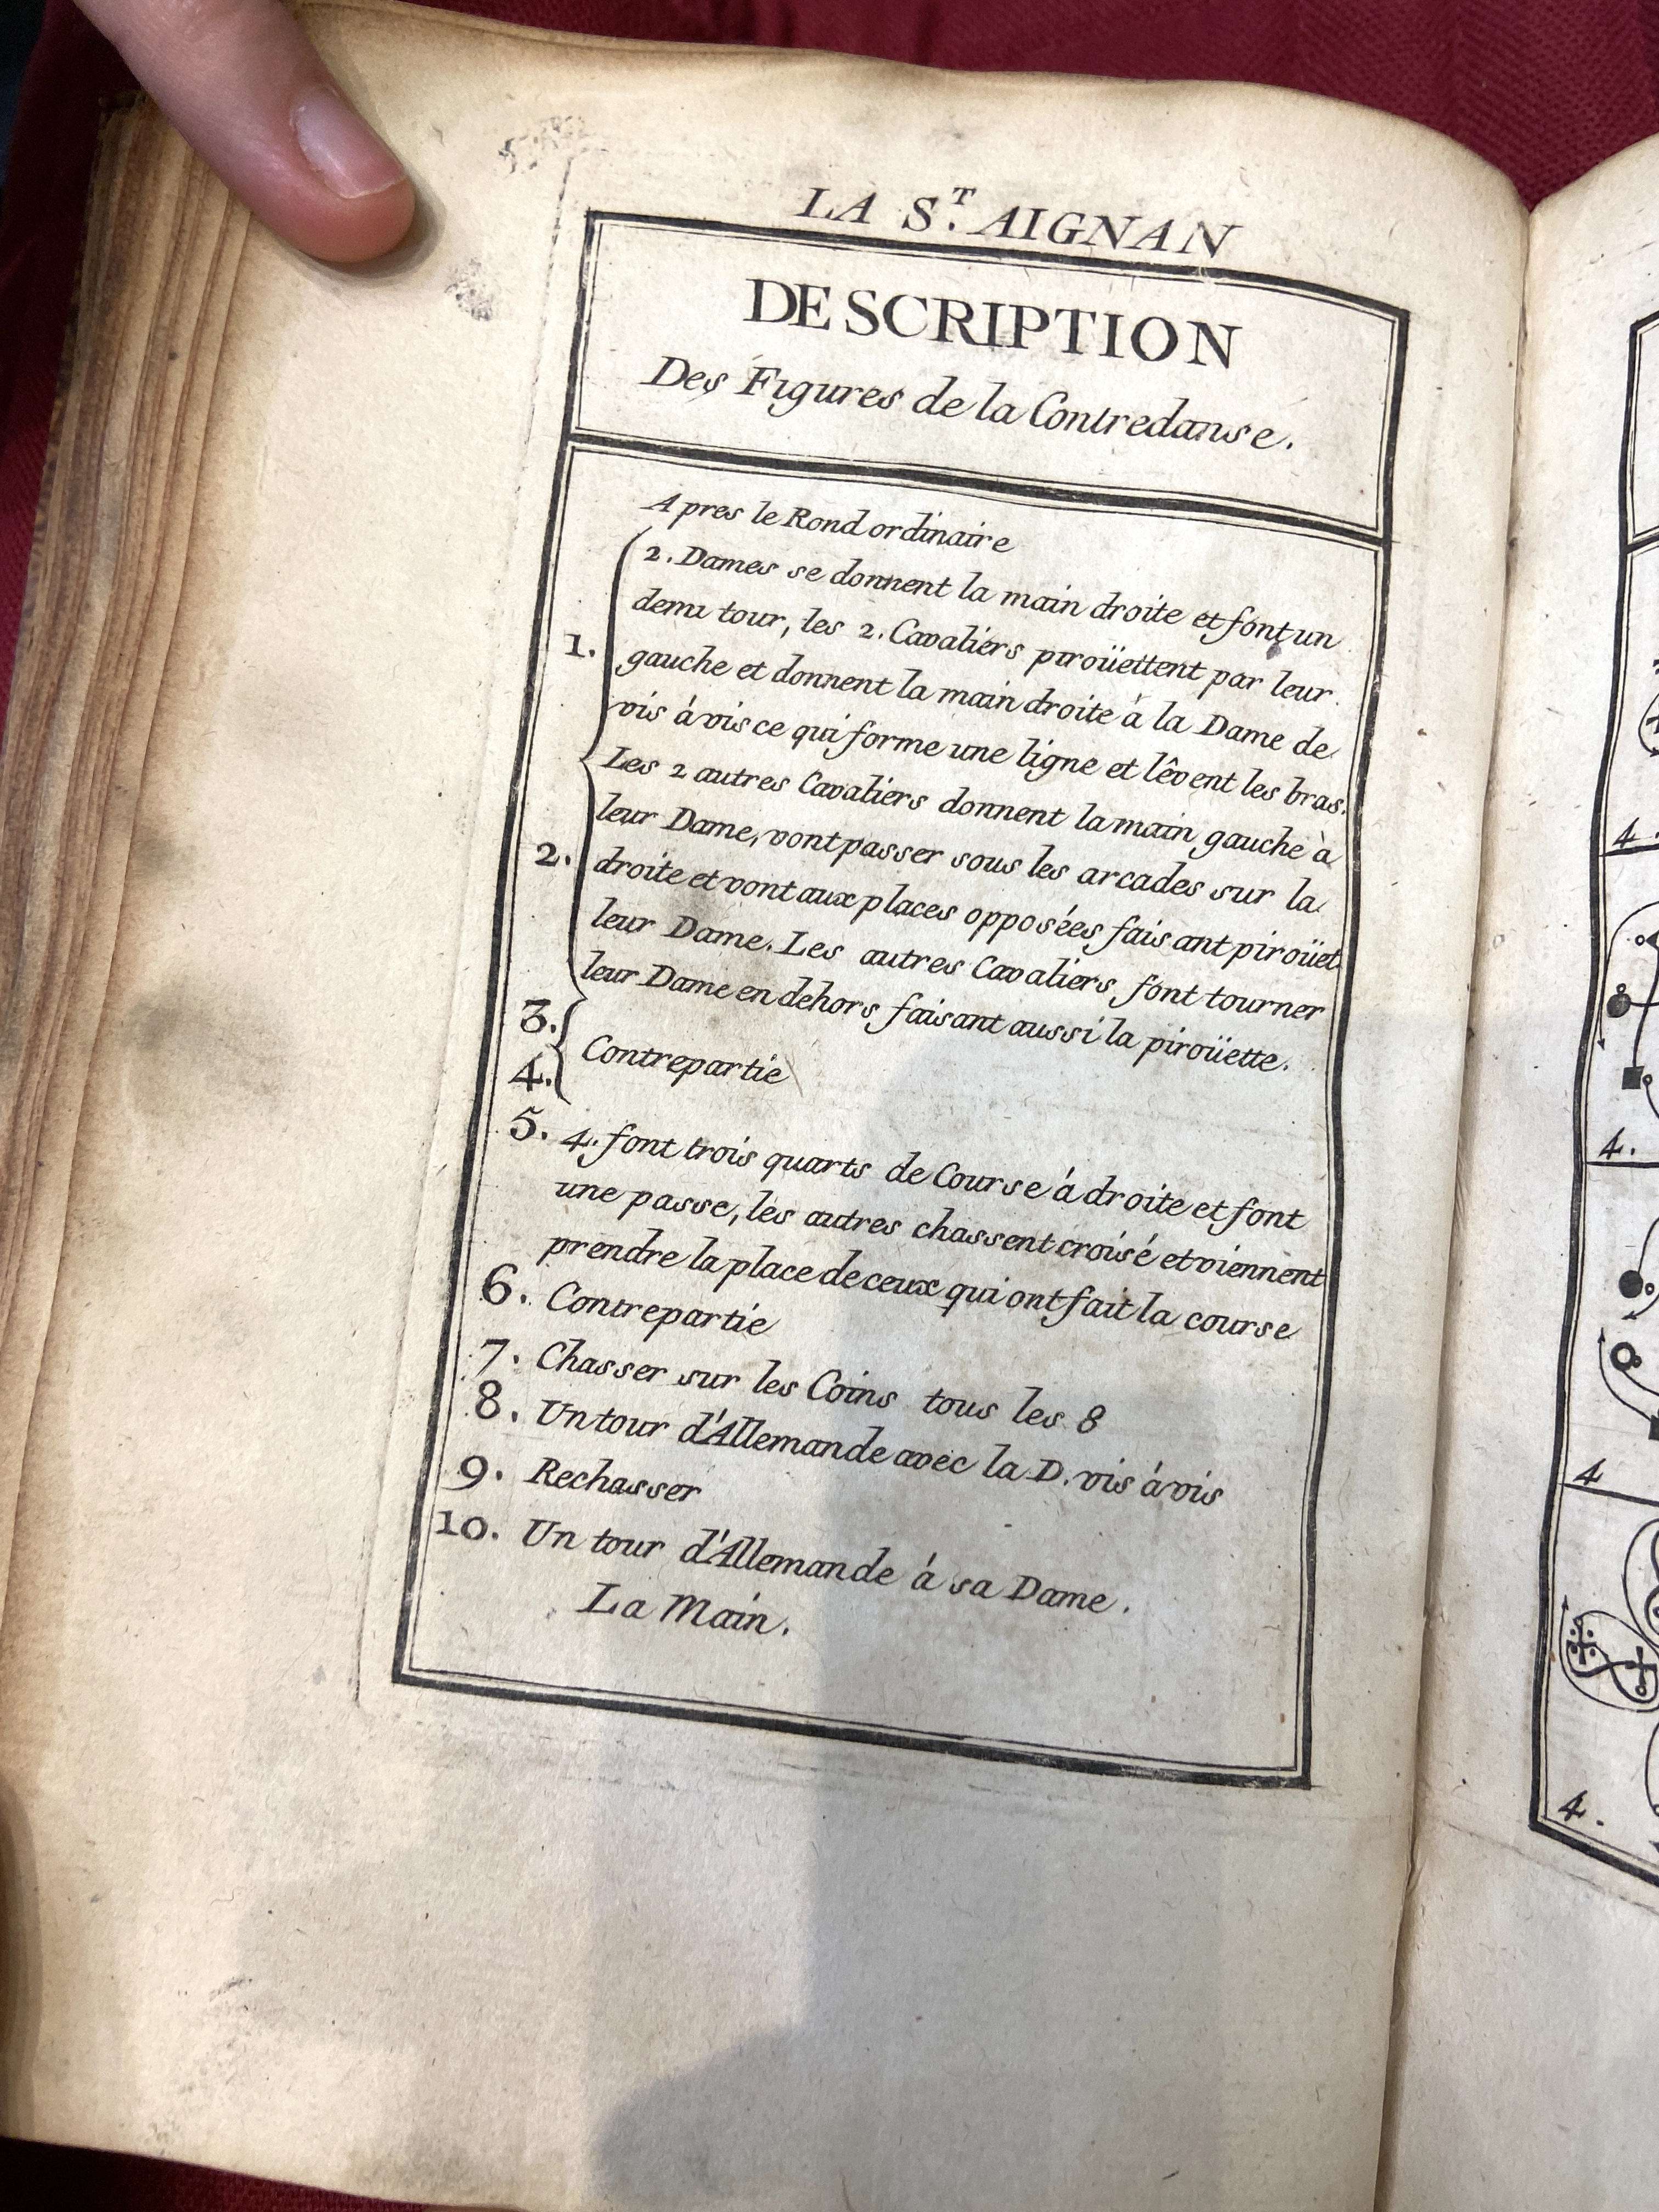 LA S.T AIGNAN
DESCRIPTION
Des Figures de la Contredanse.
Apres le Rond ordinaire
1. 2. Dames se donnent la main droite et font un
demi tour, les 2. Cavaliers piroüettent par leur
gauche et donnent la main droite à la Dame de
vis à vis ce qui forme une ligne et lêvent les bras.
2. Les 2 autres Cavaliers donnent la main gauche à
leur Dame, vont passer sous les arcades sur la
droite et vont aux places opposées faisant piroüet
leur Dame. Les autres Cavaliers font tourner
leur Dame en dehors faisant aussi la piroüette.
3.
4. Contrepartie
5. 4. font trois quarts de Course à droite et font
une passe, les autres chassent croisé et viennent
prendre la place de ceux qui ont fait la course
6. Contrepartie
7. Chasser sur les Coins tous les 8
8. Un tour d'Allemande avec la D. vis à vis
9. Rechasser
10. Un tour d'Allemande à sa Dame.
La Main.
4.
4.
4
4.